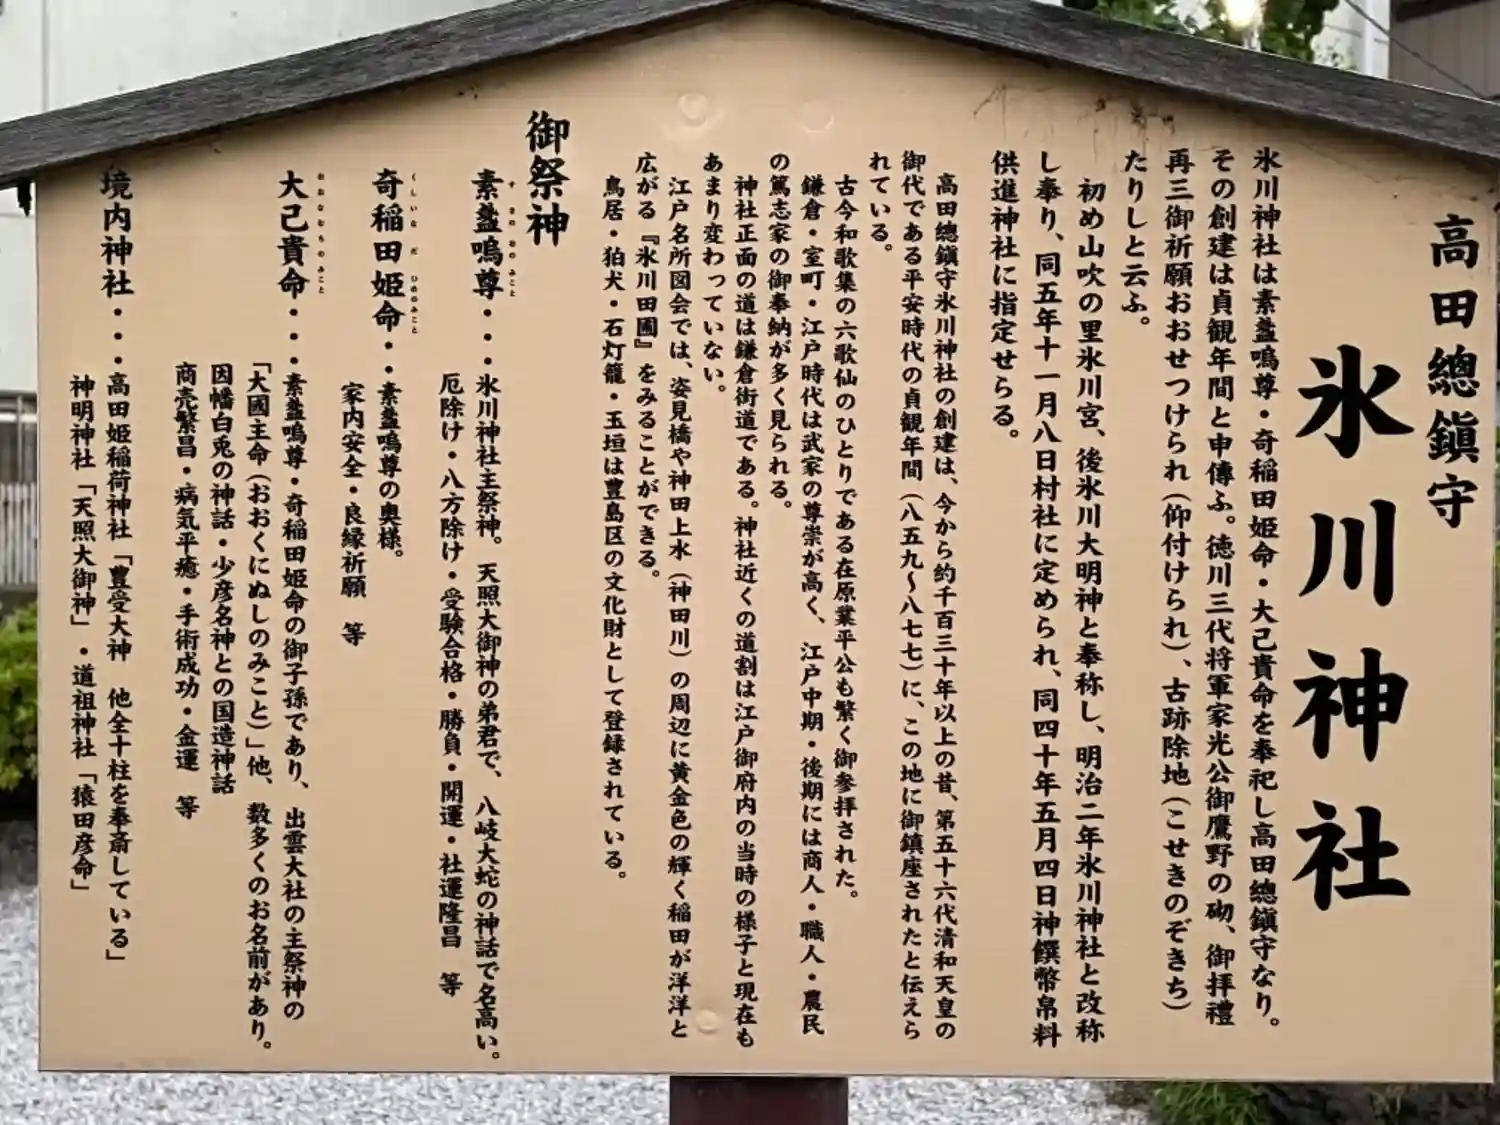 高田總鎭守
氷川神社
氷川神社は素盞嗚尊・奇稲田姫命・大己貴命を奉祀し高田總鎭守なり。
その創建は貞観年間と申傳ふ。徳川三代将軍家光公御鷹野の砌、御拝禮
再三御祈願おおせつけられ(仰付けられ)、古跡除地(こせきのぞきち)
たりしと云ふ。
初め山吹の里氷川宮、後氷川大明神と奉称し、明治二年氷川神社と改称
し奉り、同五年十一月八日村社に定められ、同四十年五月四日神饌幣帛料
供進神社に指定せらる。
高田總鎭守氷川神社の創建は、今から約千百三十年以上の昔、第五十六代清和天皇の
御代である平安時代の貞観年間(八五九〜八七七)に、この地に御鎮座されたと伝えら
れている。
古今和歌集の六歌仙のひとりである在原業平公も繁く御参拝された。
鎌倉・室町・江戸時代は武家の尊崇が高く、江戸中期・後期には商人・職人・農民
の篤志家の御奉納が多く見られる。
神社正面の道は鎌倉街道である。神社近くの道割は江戸御府内の当時の様子と現在も
あまり変わっていない。
江戸名所図会では、姿見橋や神田上水(神田川)の周辺に黄金色の輝く稲田が洋洋と
広がる『氷川田圃』をみることができる。
鳥居・狛犬・石灯籠・玉垣は豊島区の文化財として登録されている。
御祭神
すさのおのみこと
素盞嗚尊・・・氷川神社主祭神。天照大御神の弟君で、八岐大蛇の神話で名高い。
厄除け・八方除け・受験合格・勝負・開運・社運隆昌 等
くしいなだひめのみこと
奇稲田姫命・・素盞嗚尊の奥様。
家内安全・良縁祈願 等
おおなむちのみこと
大己貴命・・・素盞嗚尊・奇稲田姫命の御子孫であり、出雲大社の主祭神の
「大國主命(おおくにぬしのみこと)」他、数多くのお名前があり。
因幡白兎の神話・少彦名神との国造神話
商売繁昌・病気平癒・手術成功・金運 等
境内神社・・・高田姫稲荷神社「豊受大神 他全十柱を奉斎している」
神明神社「天照大御神」・道祖神社「猿田彦命」